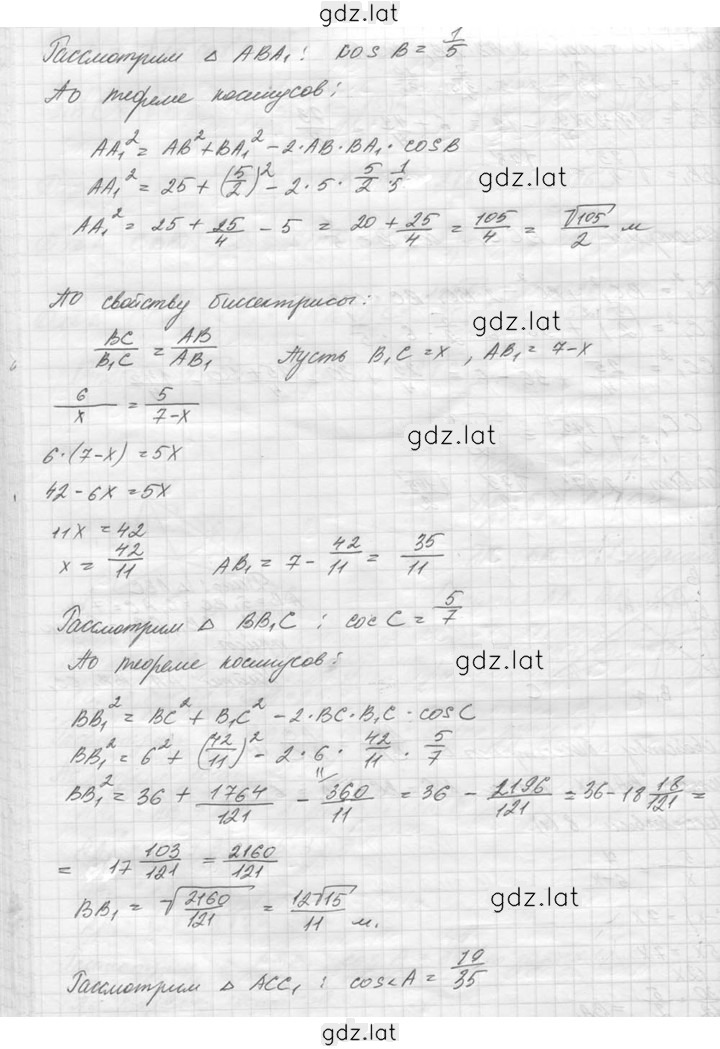 gdz.lat
Рассмотрим △ ABA₁: cos B = 1/5
По теореме косинусов:
gdz.lat
AA₁² = AB² + BA₁² - 2·AB·BA₁·cosB
AA₁² = 25 + (5/2)² - 2·5·5/2·1/5
gdz.lat
AA₁² = 25 + 25/4 - 5 = 20 + 25/4 = 105/4 = √105/2 м
По свойству биссектрисы:
gdz.lat
BC/B₁C = AB/AB₁ Пусть B₁C = x, AB₁ = 7-x
6/x = 5/7-x
gdz.lat
6·(7-x) = 5x
42-6x = 5x
11x = 42
x = 42/11 AB₁ = 7 - 42/11 = 35/11
gdz.lat
Рассмотрим △ BB₁C: cos C = 5/7
По теореме косинусов:
gdz.lat
BB₁² = BC² + B₁C² - 2·BC·B₁C·cosC
BB₁² = 6² + (42/11)² - 2·6·42/11·5/7
gdz.lat
BB₁² = 36 + 1764/121 - 360/11 = 36 - 2196/121 = 36 - 18 18/121 =
= 17 103/121 = 2160/121
gdz.lat
BB₁ = √2160/121 = 12√15/11 м.
Рассмотрим △ ACC₁: cos∠A = 19/35
gdz.lat
gdz.lat